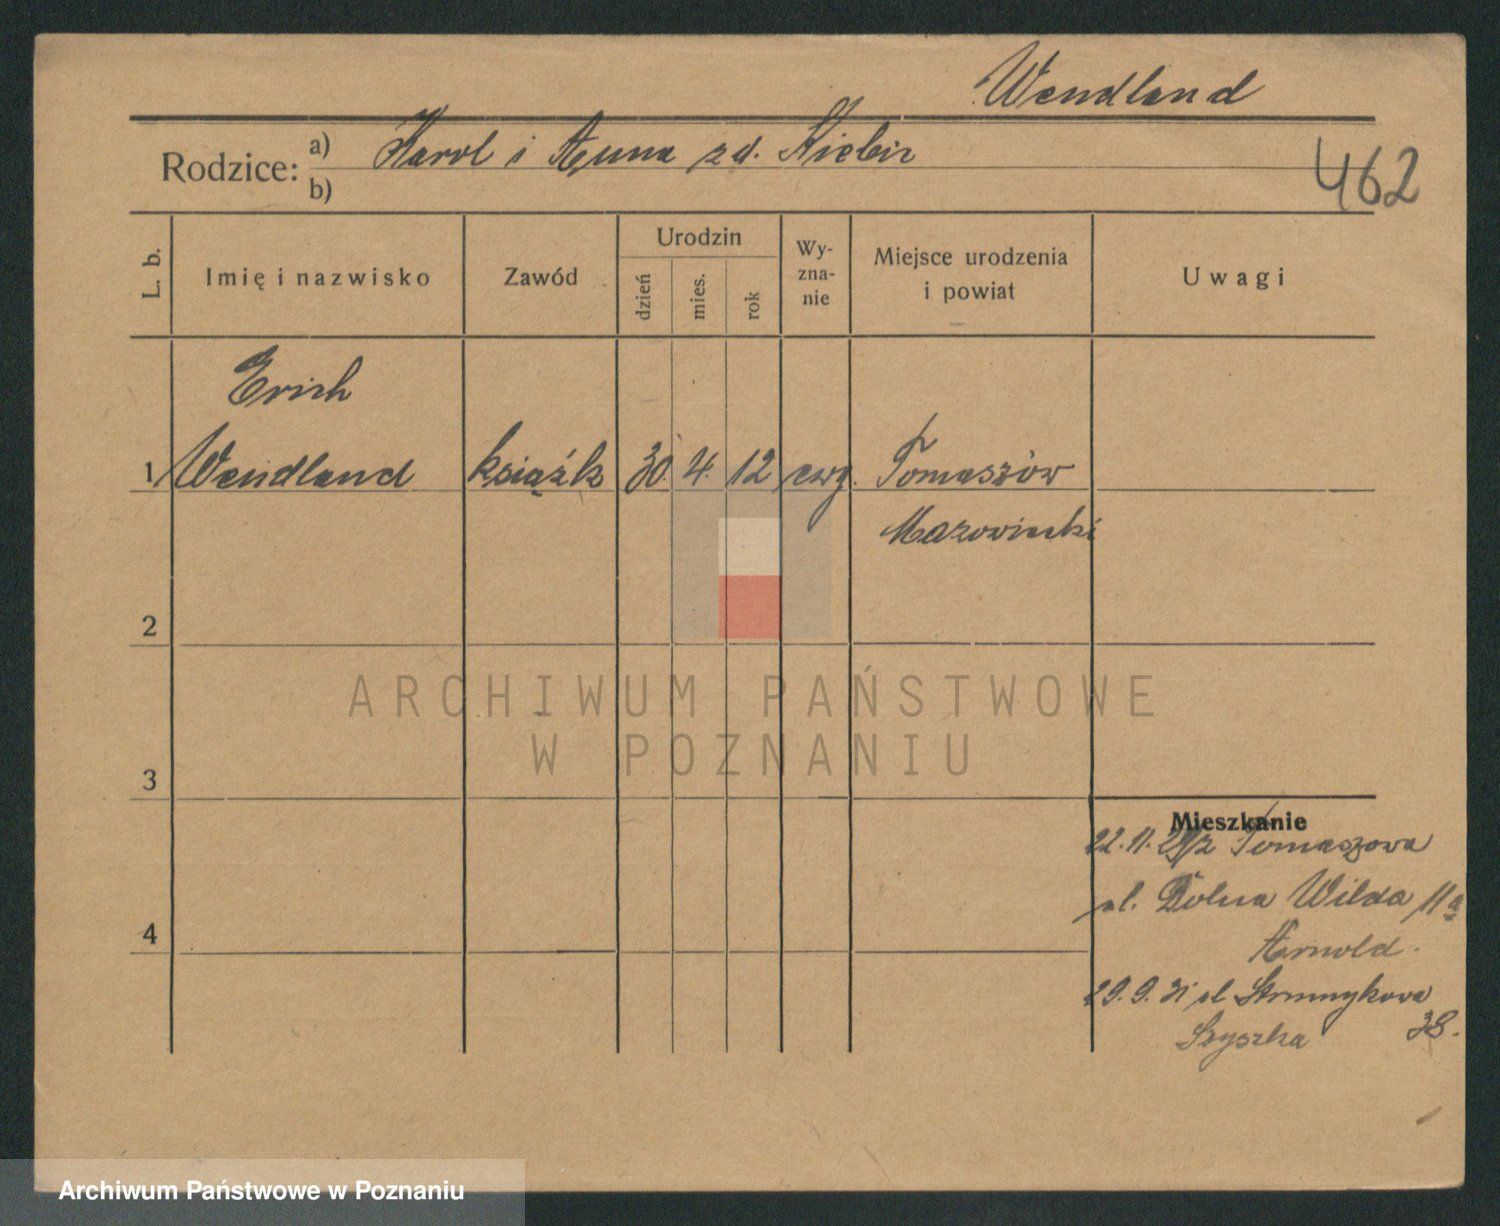 Wendland
Rodzice: a) Karol i Anna zd.
462
b)
L. b.
Imię i nazwisko
Zawód
Urodzin
dzień
mies.
rok
Wy-
zna-
nie
Miejsce urodzenia
i powiat
Uwagi
Erich
1 Wendland książk 30. 4. 12 ewg. Tomaszów
Mazowiecki
2
ARCHIWUM PAŃSTWOWE
W POZNANIU
3
Mieszkanie
22.11.29 z Tomaszowa
ul. Dolna Wilda 11a
4
Arnold.
29.9.31 ul Strumykowa
38.
Szyszka
Archiwum Państwowe w Poznaniu